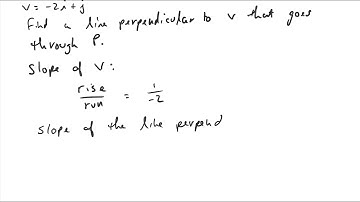 v = -2i + j
Find a line perpendicular to v that goes
through P.
Slope of v:
rise/run = 1/-2
slope of the line perpend